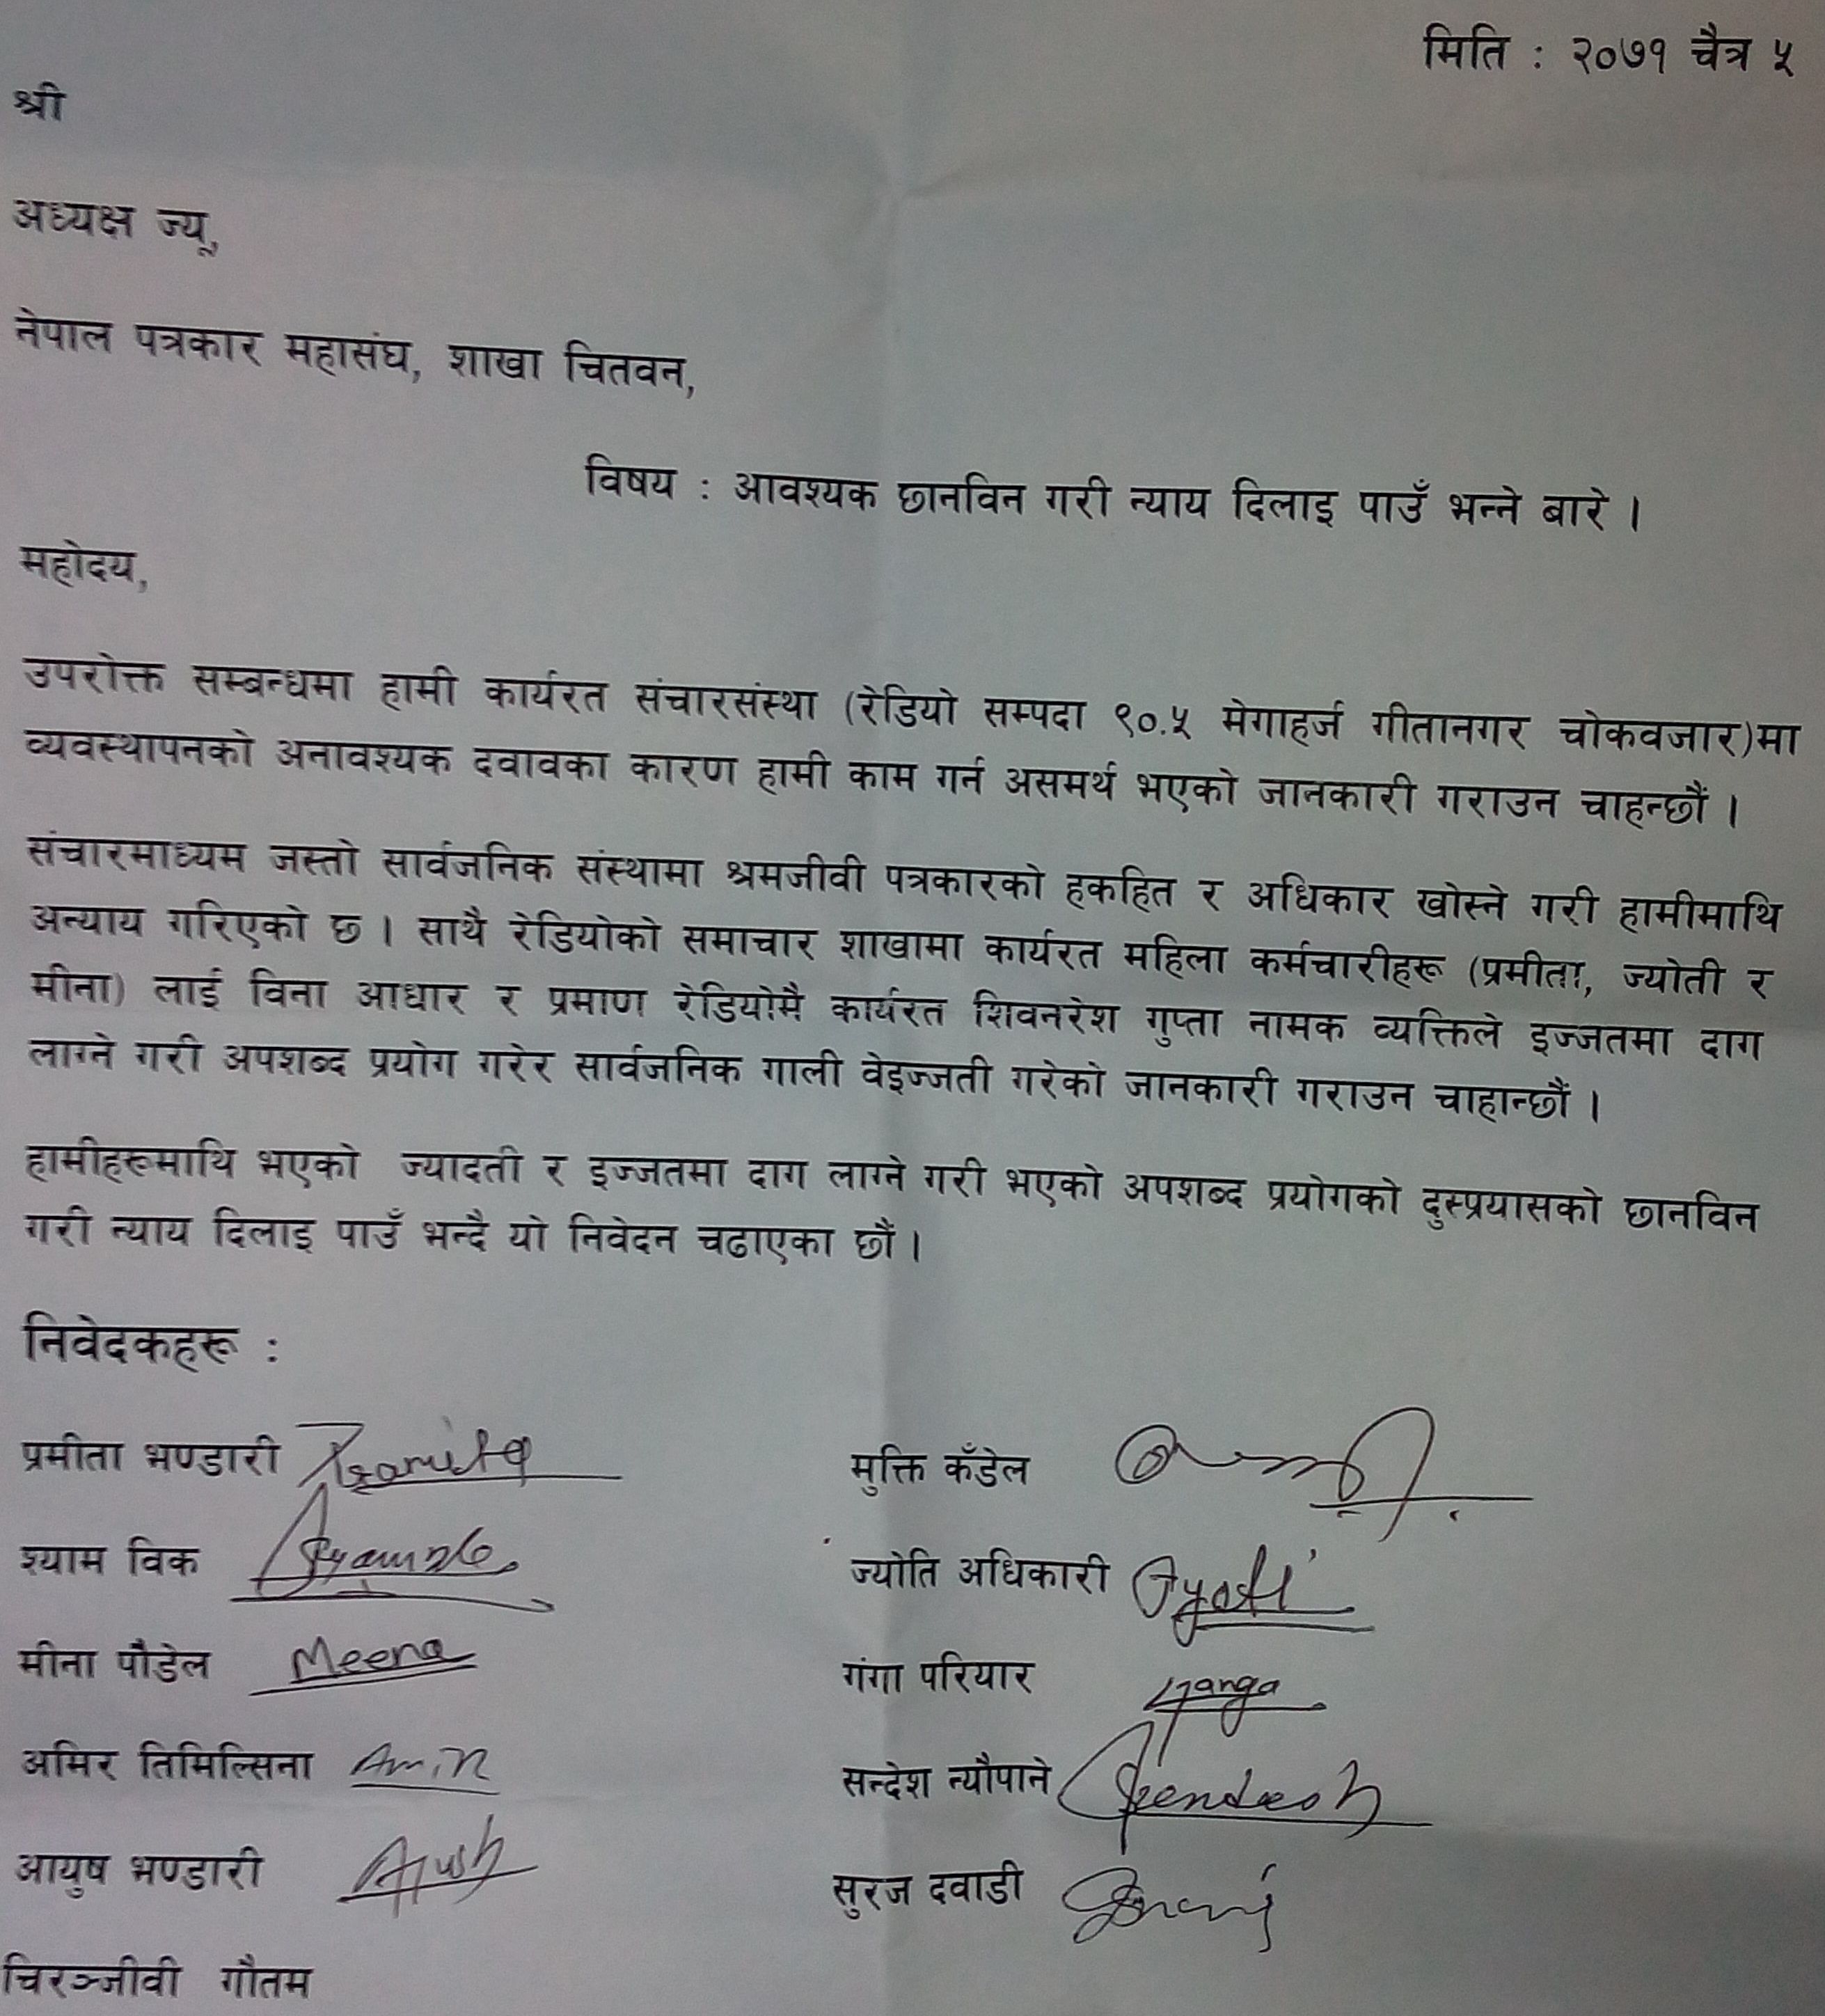 मिति : २०७१ चैत्र ५
श्री
अध्यक्ष ज्यू,
नेपाल पत्रकार महासंघ, शाखा चितवन,
विषय : आवश्यक छानविन गरी न्याय दिलाइ पाउँ भन्ने बारे ।
महोदय,
उपरोक्त सम्बन्धमा हामी कार्यरत संचारसंस्था (रेडियो सम्पदा ९०.५ मेगाहर्ज गीतानगर चोकवजार)मा
व्यवस्थापनको अनावश्यक दवावका कारण हामी काम गर्न असमर्थ भएको जानकारी गराउन चाहन्छौं ।
संचारमाध्यम जस्तो सार्वजनिक संस्थामा श्रमजीवी पत्रकारको हकहित र अधिकार खोस्ने गरी हामीमाथि
अन्याय गरिएको छ । साथै रेडियोको समाचार शाखामा कार्यरत महिला कर्मचारीहरू (प्रमीता, ज्योती र
मीना) लाई विना आधार र प्रमाण रेडियोमै कार्यरत शिवनरेश गुप्ता नामक व्यक्तिले इज्जतमा दाग
लाग्ने गरी अपशब्द प्रयोग गरेर सार्वजनिक गाली वेइज्जती गरेको जानकारी गराउन चाहान्छौं ।
हामीहरूमाथि भएको ज्यादती र इज्जतमा दाग लाग्ने गरी भएको अपशब्द प्रयोगको दुस्प्रयासको छानविन
गरी न्याय दिलाइ पाउँ भन्दै यो निवेदन चढाएका छौं ।
निवेदकहरू :
प्रमीता भण्डारी Pramita मुक्ति कँडेल
श्याम विक ज्योति अधिकारी Jyoti
मीना पौडेल Meena गंगा परियार Ganga
अमिर तिमिल्सिना Amir सन्देश न्यौपाने Sendesh
आयुष भण्डारी Ayush सुरज दवाडी
चिरञ्जीवी गौतम